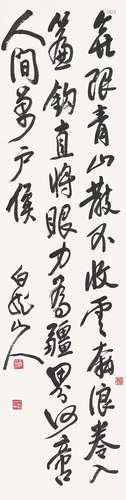 無限青山散不收雲奔浪卷入
簾鉤直將眼力為疆界何啻
人間萬戶侯
白龍山人